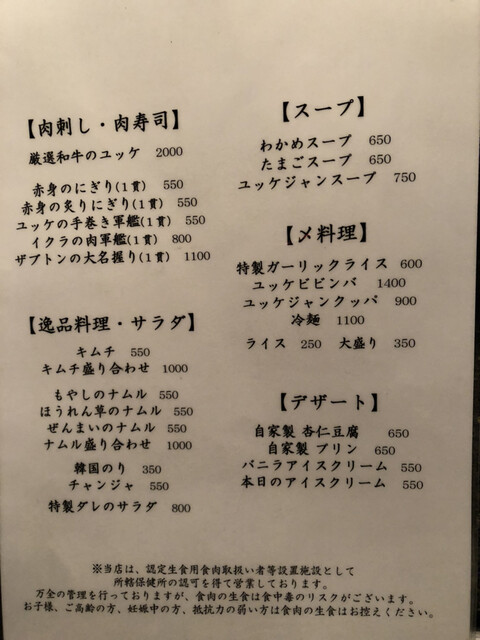 【肉刺し・肉寿司】
厳選和牛のユッケ 2000
赤身のにぎり(1貫) 550
赤身の炙りにぎり(1貫) 550
ユッケの手巻き軍艦(1貫) 550
イクラの肉軍艦(1貫) 800
ザブトンの大名握り(1貫) 1100
【逸品料理・サラダ】
キムチ 550
キムチ盛り合わせ 1000
もやしのナムル 550
ほうれん草のナムル 550
ぜんまいのナムル 550
ナムル盛り合わせ 1000
韓国のり 350
チャンジャ 550
特製ダレのサラダ 800
【スープ】
わかめスープ 650
たまごスープ 650
ユッケジャンスープ 750
【〆料理】
特製ガーリックライス 600
ユッケビビンバ 1400
ユッケジャンクッパ 900
冷麺 1100
ライス 250 大盛り 350
【デザート】
自家製 杏仁豆腐 650
自家製 プリン 650
バニラアイスクリーム 550
本日のアイスクリーム 550
※当店は、認定生食用食肉取扱い者等設置施設として
所轄保健所の認可を得て営業しております。
万全の管理を行っておりますが、食肉の生食は食中毒のリスクがございます。
お子様、ご高齢の方、妊娠中の方、抵抗力の弱い方は食肉の生食はお控えください。